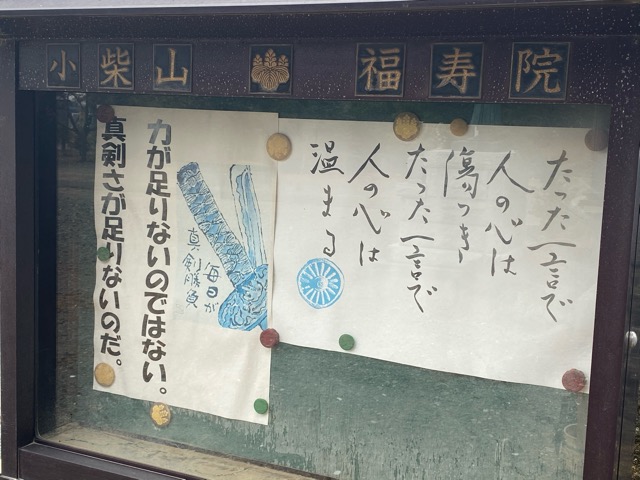 小柴山 福寿院
たった一言で
人の心は
傷つき
たった一言で
人の心は
温まる
力が足りないのではない。
真剣さが足りないのだ。
毎日が
真剣勝負